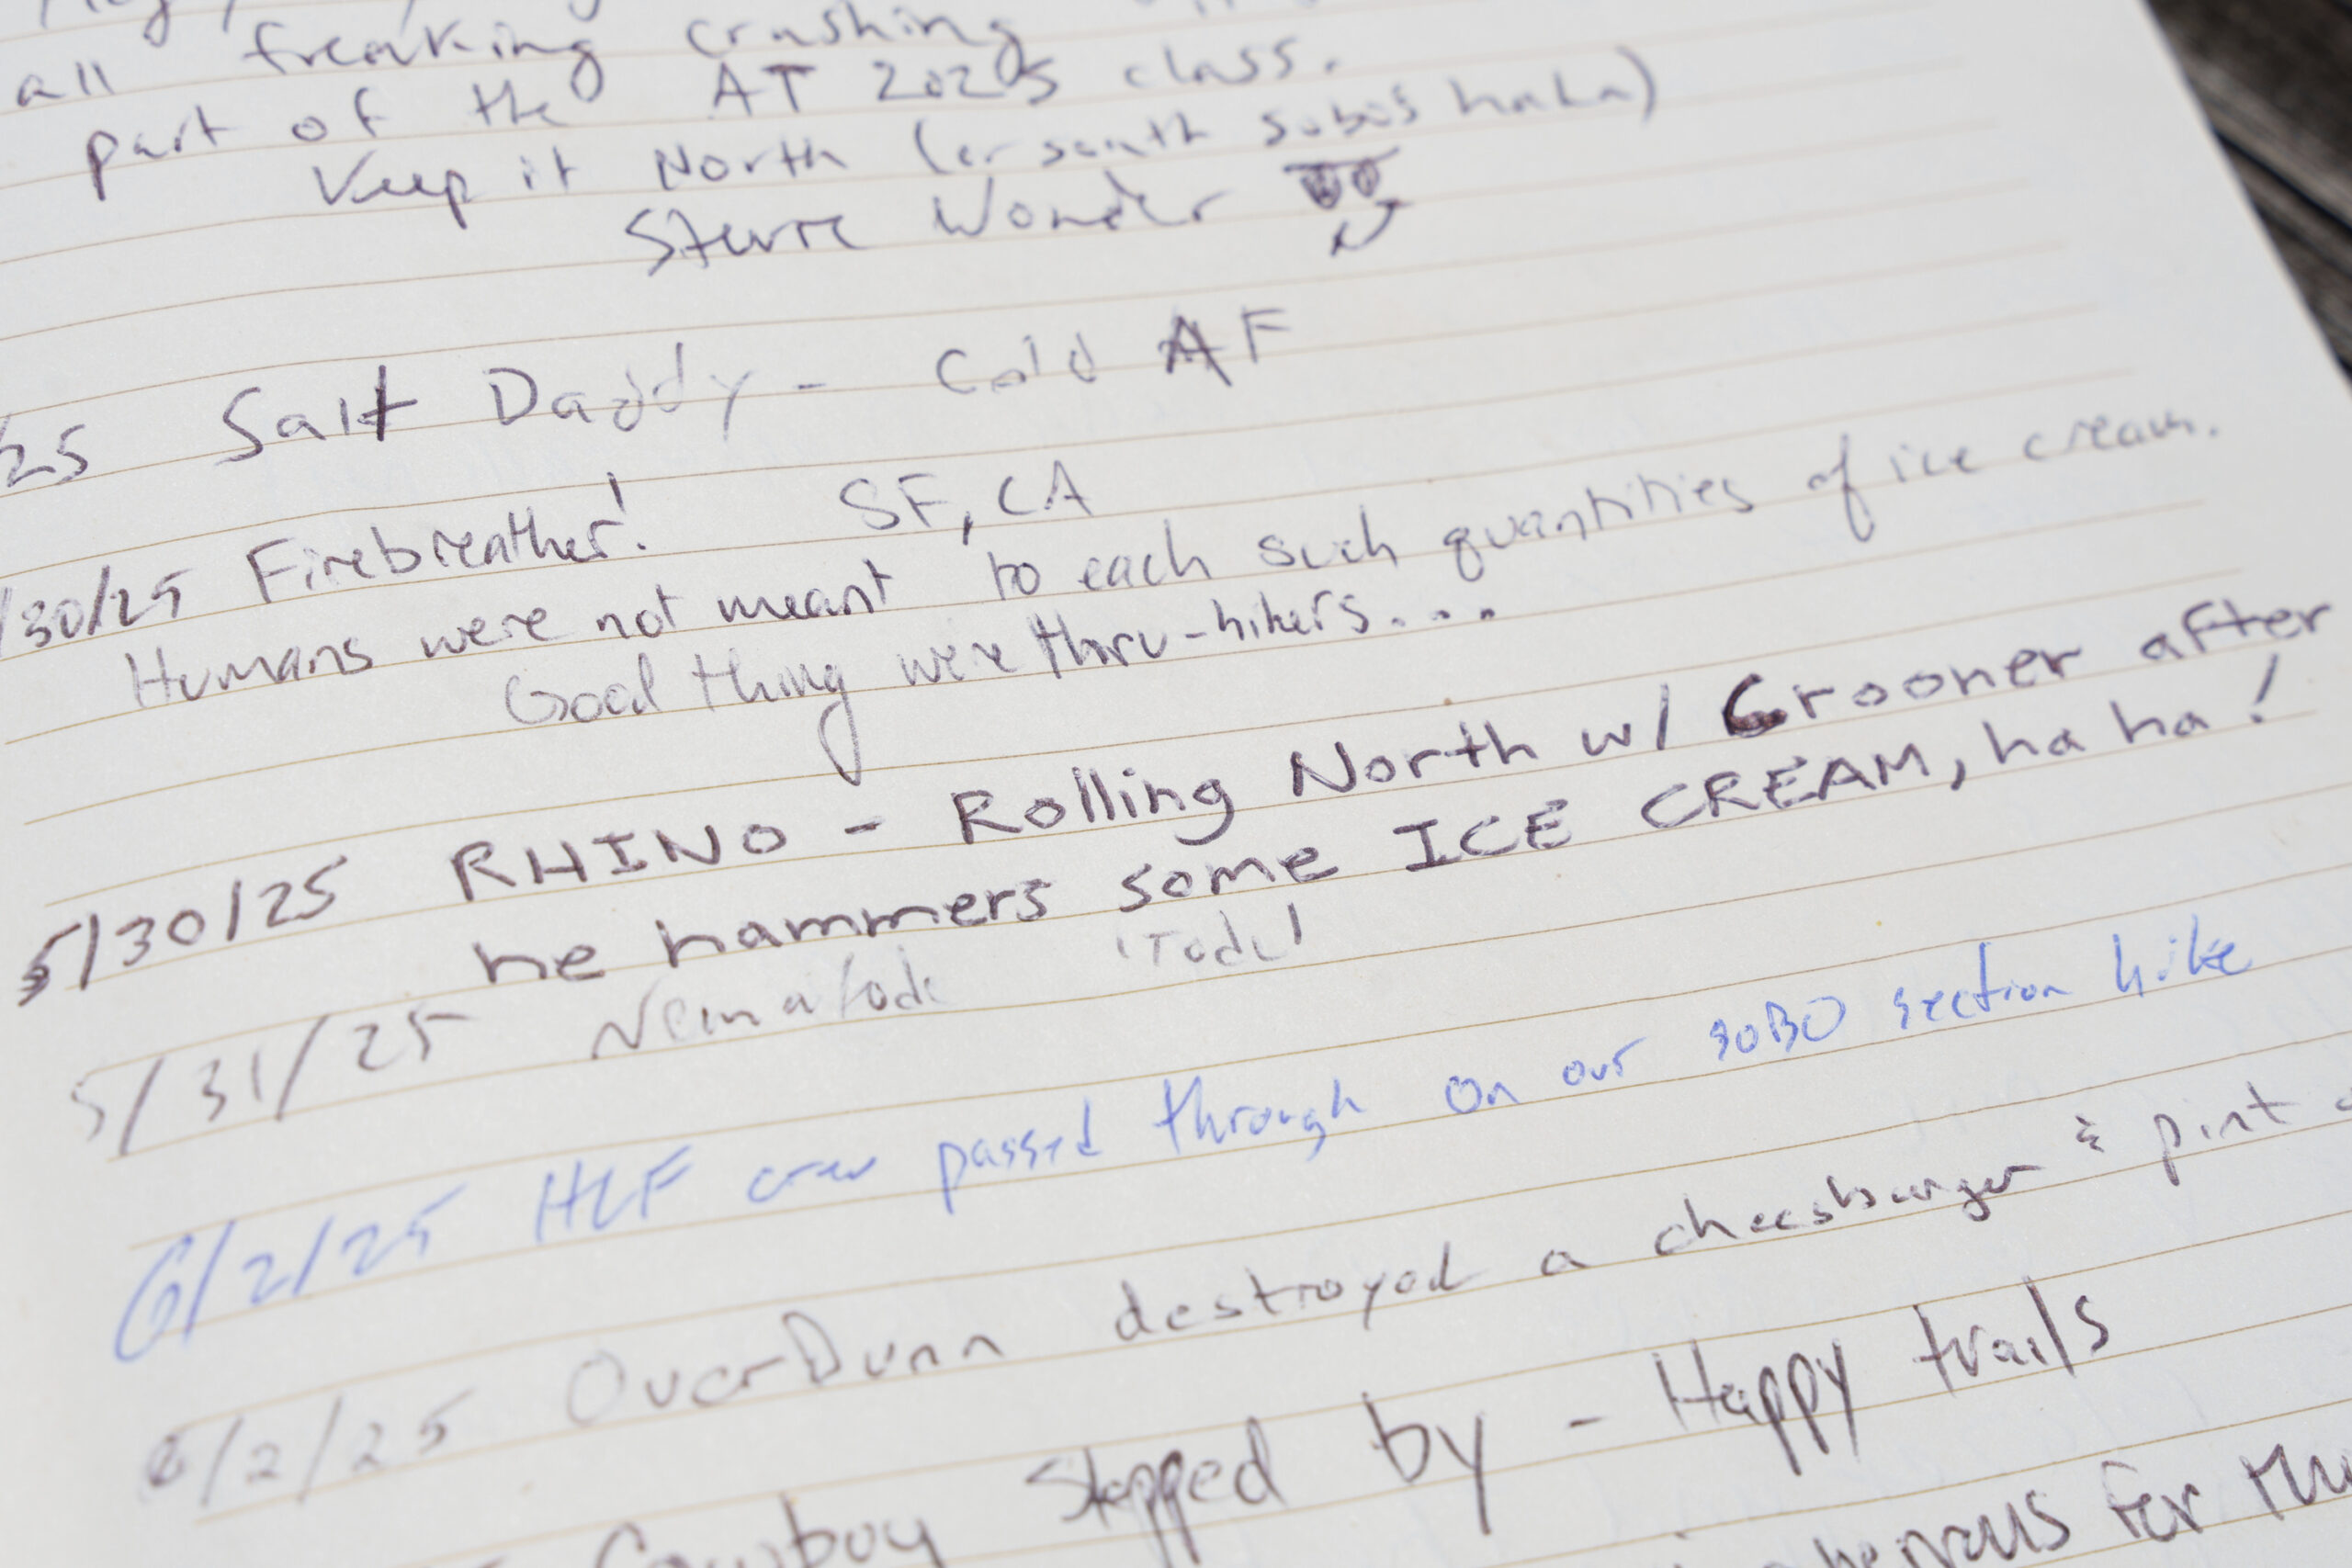 all freaking crushing
part of the AT 2025 class.
Keep it North (or south sobos haha)
Stevie Wonder
25 Salt Daddy - Cold AF
/30/25 Firebreather! SF, CA
Humans were not meant to each such quantities of ice cream.
Good thing we're thru-hikers....
5/30/25 RHINO - Rolling North w/ Crooner after
he hammers some ICE CREAM, ha ha!
5/31/25 Nematode 'Tode'
6/2/25 HLF crew passed through on our SOBO section hike
6/2/25 OverDunn destroyed a cheesburger & pint
Cowboy stopped by - Happy trails
for